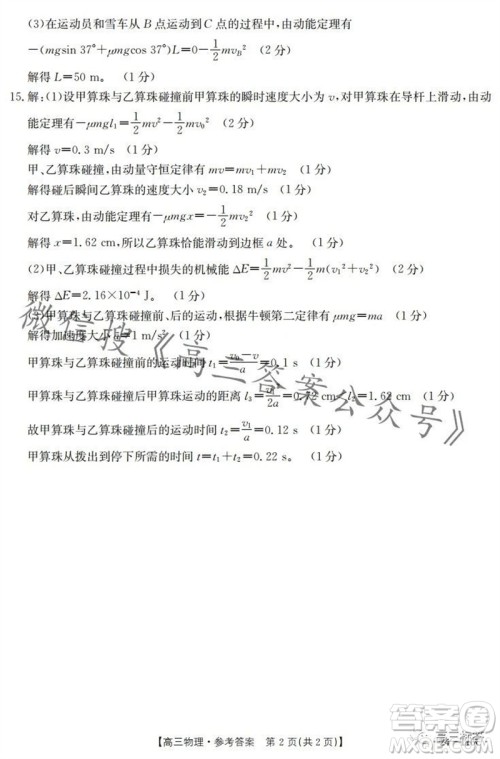 (3)在运动员和雪车从B点运动到C点的过程中,由动能定理有
-(mgsin 37°+μmgcos 37°)L=0-1/2mv_B² (2分)
解得L=50 m。(1分)
15.解:(1)设甲算珠与乙算珠碰撞前甲算珠的瞬时速度大小为v,对甲算珠在导杆上滑动,由动
能定理有-μmgl₁=1/2mv²-1/2mv₀² (2分)
解得v=0.3 m/s (1分)
甲、乙算珠碰撞,由动量守恒定律有mv=mv₁+mv₂ (1分)
解得碰后瞬间乙算珠的速度大小v₂=0.18 m/s (1分)
对乙算珠,由动能定理有-μmgx=0-1/2mv₂² (1分)
解得x=1.62 cm,所以乙算珠恰能滑动到边框a处。(1分)
(2)甲、乙算珠碰撞过程中损失的机械能ΔE=1/2mv²-1/2m(v₁²+v₂²) (1分)
解得ΔE=2.16×10⁻⁴ J。(1分)
甲算珠与乙算珠碰撞前、后,根据牛顿第二定律有μmg=ma (1分)
解得加速度大小a=1 m/s² (1分)
甲算珠与乙算珠碰撞前的运动时间t₁=(v₀-v)/a=0.1 s (1分)
甲算珠与乙算珠碰撞后甲算珠运动的距离l₃=v₁²/2a=0.72 cm<l₂=1.62 cm (1分)
故甲算珠与乙算珠碰撞后的运动时间t₂=v₁/a=0.12 s (1分)
甲算珠从拨出到停下所需的时间t=t₁+t₂=0.22 s。(1分)
微信搜《高三答案公众号》
【高三物理·参考答案 第2页(共2页)】
答案圈
MXQE.COM